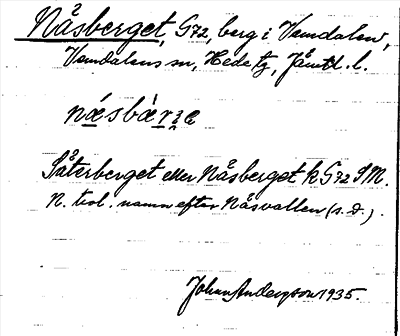 Nåsberget, G72, berg i Vemdalen,
Vemdalens sn, Hede tg, Jämtl. l.
næsbærʒe
Såterberget eller Nåsberget k G72 SM.
N. trol. namn efter Nåsvallen (s. d.).
Johan Anderson 1935.